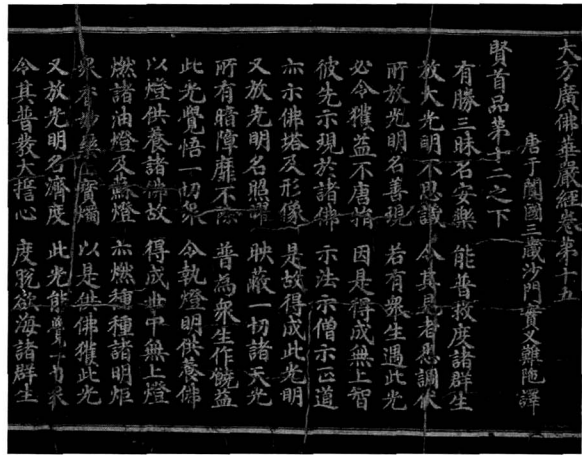 大方廣佛華嚴經卷第十五
唐于闐國三藏沙門實叉難陁譯
賢首品第十二之下
有勝三昧名安樂 能普救度諸群生
放大光明不思議 令其見者悉調伏
所放光明名善現 若有衆生遇此光
必令獲益不唐捐 因是得成無上智
彼先示現於諸佛 示法示僧示正道
亦示佛塔及形像 是故得成此光明
又放光明名照耀 映蔽一切諸天光
所有暗障靡不除 普為衆生作饒益
此光覺悟一切衆 令執燈明供養佛
以燈供養諸佛故 得成世中無上燈
燃諸油燈及蘇燈 亦燃種種諸明炬
衆香妙藥上寶燭 以是供佛獲此光
又放光明名濟度 此光能覺一切衆
令其普發大誓心 度脫欲海諸群生